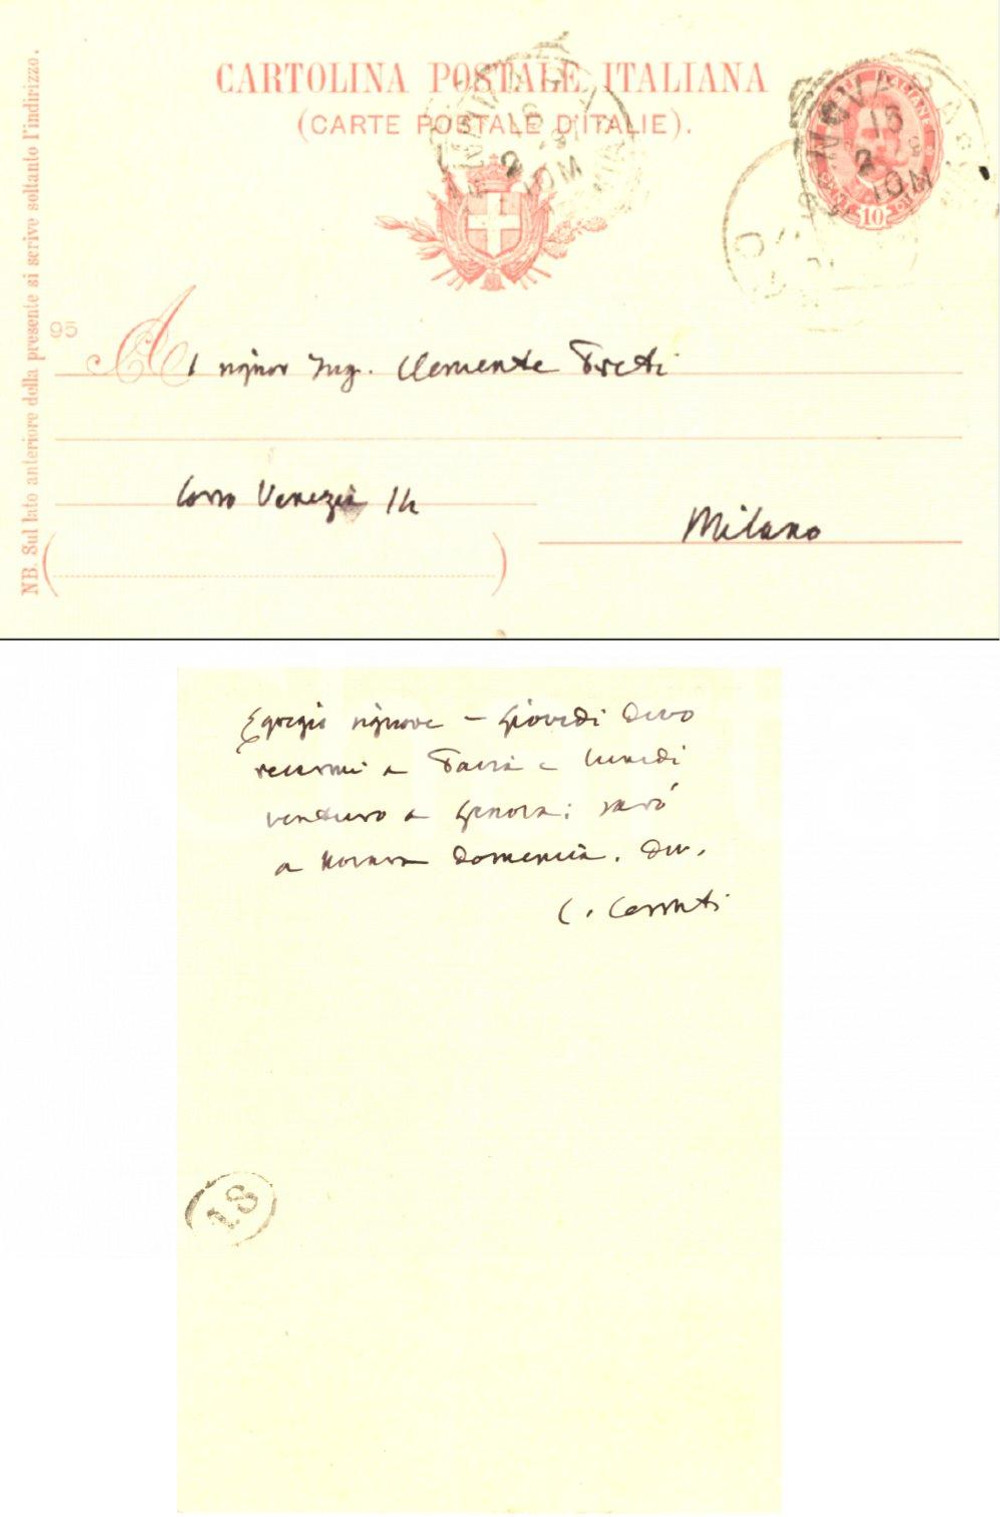 CARTOLINA POSTALE ITALIANA
(CARTE POSTALE D'ITALIE).
NB. Sul lato anteriore della presente si scrive soltanto l'indirizzo.
95
10
Al signor Ing. Clemente Preti
Corso Venezia 14
Milano
Egregio signore – Giovedì devo
recarmi a Pavia e lunedì
venturo a Genova; sarò
a Novara domenica. Dev.
C. Cerruti
18